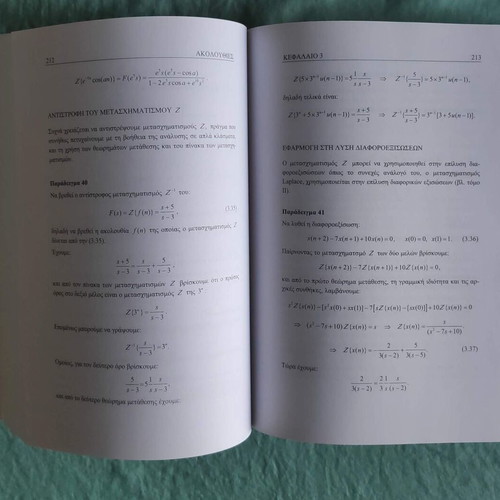 212 ΑΚΟΛΟΥΘΙΕΣ
Z{e^{-n} cos(an)} = F(e^z s) = e^z s(e^z s − cos a) / 1 − 2e^z s cos a + e^{2z} s^2
ΑΝΤΙΣΤΡΟΦΗ ΤΟΥ ΜΕΤΑΣΧΗΜΑΤΙΣΜΟΥ Z
Συχνά χρειάζεται να αντιστρέψουμε μετασχηματισμούς Z, πράγμα που
συνήθως πετυχαίνουμε με τη βοήθεια της ανάλυσης σε απλά κλάσματα
και τη χρήση των θεωρημάτων μετάθεσης και του πίνακα των μετασχη-
ματισμών.
Παράδειγμα 40
Να βρεθεί ο αντίστροφος μετασχηματισμός Z^{-1} του:
F(s) = Z{f(n)} = s+5 / s−3, (3.35)
δηλαδή να βρεθεί η ακολουθία f(n) της οποίας ο μετασχηματισμός Z
δίνεται από την (3.35).
Έχουμε:
s+5 / s−3 = s / s−3 + 5 / s−3,
και από τον πίνακα των μετασχηματισμών Z βρίσκουμε ότι ο πρώτος
όρος στο δεξιό μέλος είναι ο μετασχηματισμός Z της 3^n.
Z{3^n} = s / s−3.
Επομένως μπορούμε να γράψουμε:
Z^{-1}{s / s−3} = 3^n
Ομοίως, για τον δεύτερο όρο βρίσκουμε:
5 / s−3 = 5 1/s s / s−3,
και από το δεύτερο θεώρημα μετάθεσης έχουμε:
ΚΕΦΑΛΑΙΟ 3 213
Z{5×3^{n-1} u(n−1)} = 5 1/s s / s−3 ⇒ Z^{-1}{5 / s−3} = 5×3^{n-1} u(n−1),
δηλαδή τελικά είναι:
Z{3^n + 5×3^{n-1} u(n−1)} = s+5 / s−3 ⇒ Z^{-1}{s+5 / s−3} = 3^{n-1}[3+5u(n−1)].
ΕΦΑΡΜΟΓΗ ΣΤΗ ΛΥΣΗ ΔΙΑΦΟΡΟΕΞΙΣΩΣΕΩΝ
Ο μετασχηματισμός Z μπορεί να χρησιμοποιηθεί στην επίλυση δια-
φοροεξισώσεων όπως το συνεχές ανάλογό του, ο μετασχηματισμός
Laplace, χρησιμοποιείται στην επίλυση διαφορικών εξισώσεων (βλ. τόμο
II).
Παράδειγμα 41
Να λυθεί η διαφοροεξίσωση:
x(n+2) − 7x(n+1) + 10x(n) = 0, x(0) = 0, x(1) = 1. (3.36)
Παίρνοντας το μετασχηματισμό Z των δύο μελών βρίσκουμε:
Z{x(n+2)} − 7Z{x(n+1)} + 10Z{x(n)} = 0,
και από το πρώτο θεώρημα μετάθεσης, τη γραμμική ιδιότητα και τις αρ-
χικές συνθήκες, λαμβάνουμε:
s^2 Z{x(n)} − [s^2 x(0) + sx(1)] − 7[sZ{x(n)} − [sx(0)]] + 10Z{x(n)} = 0
⇒ (s^2 − 7s + 10) Z{x(n)} = s ⇒ Z{x(n)} = s / (s^2 − 7s + 10)
⇒ Z{x(n)} = − 2 / 3(s−2) + 5 / 3(s−5). (3.37)
Τώρα έχουμε:
2 / 3(s−2) = 2/3 1/s s / (s−2)